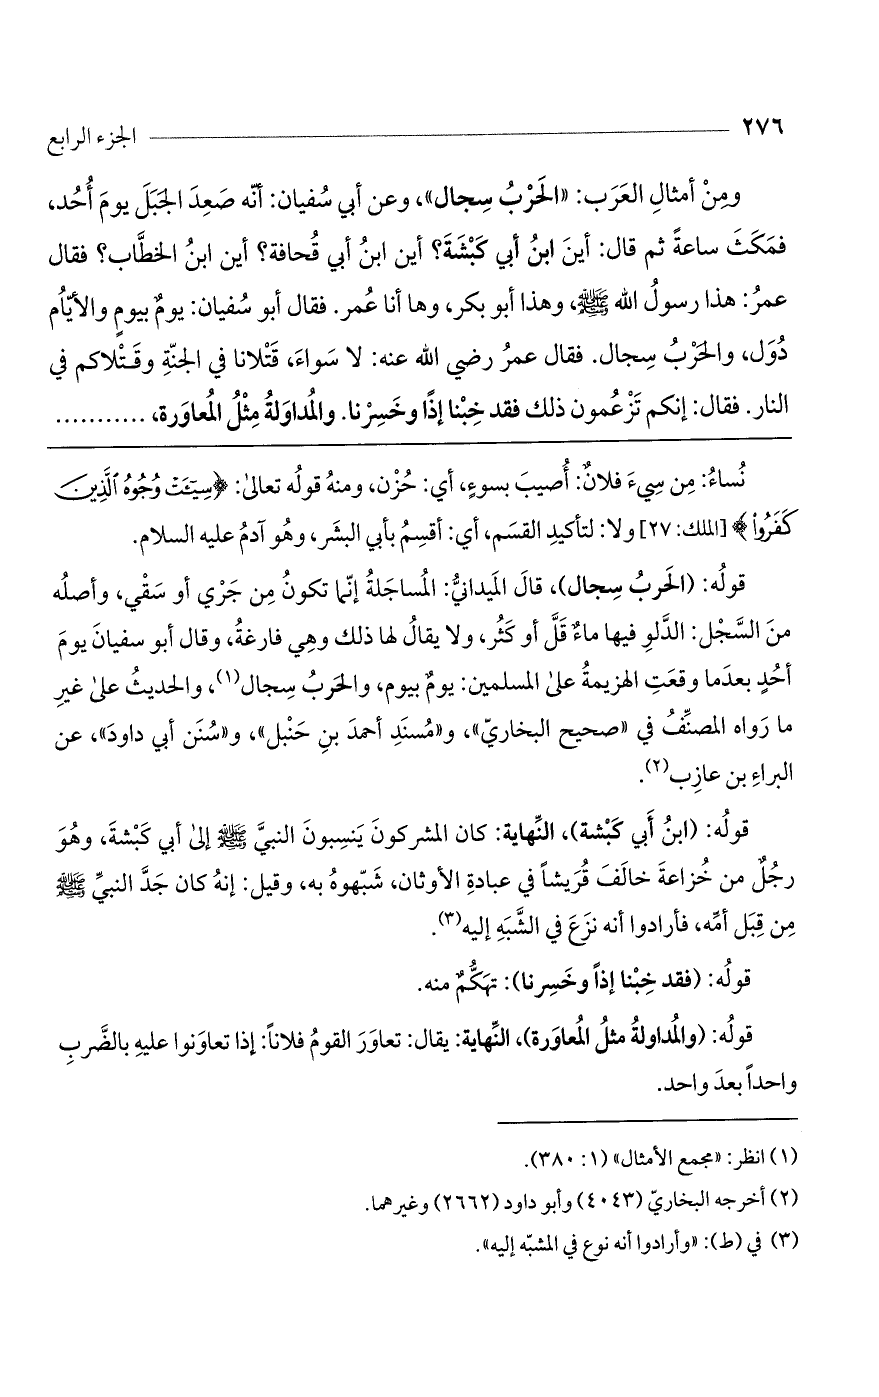 ٢٧٦ الجزء الرابع
ومِنْ أمثالِ العَرَب: «الحَرْبُ سِجال»، وعن أبي سُفيان: أنّه صَعِدَ الجَبَلَ يومَ أُحُد،
فمَكَثَ ساعةً ثم قال: أينَ ابنُ أبي كَبْشَةَ؟ أين ابنُ أبي قُحافة؟ أين ابنُ الخطَّاب؟ فقال
عمرُ: هذا رسولُ الله ﷺ، وهذا أبو بكر، وها أنا عُمر. فقال أبو سُفيان: يومٌ بيومٍ والأيّام
دُوَل، والحَرْبُ سِجال. فقال عمرُ رضي الله عنه: لا سَواءَ، قَتْلانا في الجنّةِ وقَتْلاكم في
النار. فقال: إنكم تَزْعُمون ذلك فقد خِبْنا إذًا وخَسِرْنا. والمُداوَلةُ مِثْلُ المُعاوَرة، ...........
نُساءُ: مِن سِيءَ فلانٌ: أُصيبَ بسوءٍ، أي: حُزْن، ومنهُ قولُه تعالىٰ: ﴿سِيٓـَٔتْ وُجُوهُ ٱلَّذِينَ
كَفَرُواْ﴾ [الملك: ٢٧] ولا: لتأكيدِ القسَم، أي: أقسِمُ بأبي البشَر، وهُو آدمُ عليه السلام.
قولُه: (الحَربُ سِجال)، قالَ المَيدانيُّ: المُساجَلةُ إنّما تكونُ مِن جَرْي أو سَقْي، وأصلُه
منَ السَّجْل: الدَّلوِ فيها ماءٌ قَلَّ أو كَثُر، ولا يقالُ لها ذلك وهِي فارغةُ، وقال أبو سفيانَ يومَ
أُحُدٍ بعدَما وقعَتِ الهزيمةُ علىٰ المسلمين: يومٌ بيوم، والحَربُ سِجال(١)، والحديثُ علىٰ غيرِ
ما رَواه المصنِّفُ في «صحيح البخاريّ»، و«مُسنَدِ أحمدَ بنِ حَنْبل»، و«سُنَن أبي داود»، عن
البراءِ بن عازِب(٢).
قولُه: (ابنُ أَبي كَبْشة)، النِّهاية: كان المشركونَ يَنسِبونَ النبيَّ ﷺ إلىٰ أبي كَبْشةَ، وهُوَ
رجُلٌ من خُزاعةَ خالَفَ قُرَيشاً في عبادةِ الأوثان، شَبّهوهُ به، وقيل: إنهُ كان جَدَّ النبيِّ ﷺ
مِن قِبَل أمِّه، فأرادوا أنه نزَعَ في الشَّبَهِ إليه(٣).
قولُه: (فقد خِبْنا إذاً وخَسِرنا): تهكُّمٌ منه.
قولُه: (والمُداولةُ مثلُ المُعاوَرة)، النِّهاية: يقال: تعاوَرَ القومُ فلاناً: إذا تعاوَنوا عليهِ بالضَّربِ
واحداً بعدَ واحد.
(١) انظر: «مجمع الأمثال» (١: ٣٨٠).
(٢) أخرجه البخاريّ (٤٠٤٣) وأبو داود (٢٦٦٢) وغيرهما.
(٣) في (ط): «وأرادوا أنه نوع في المشبّه إليه».